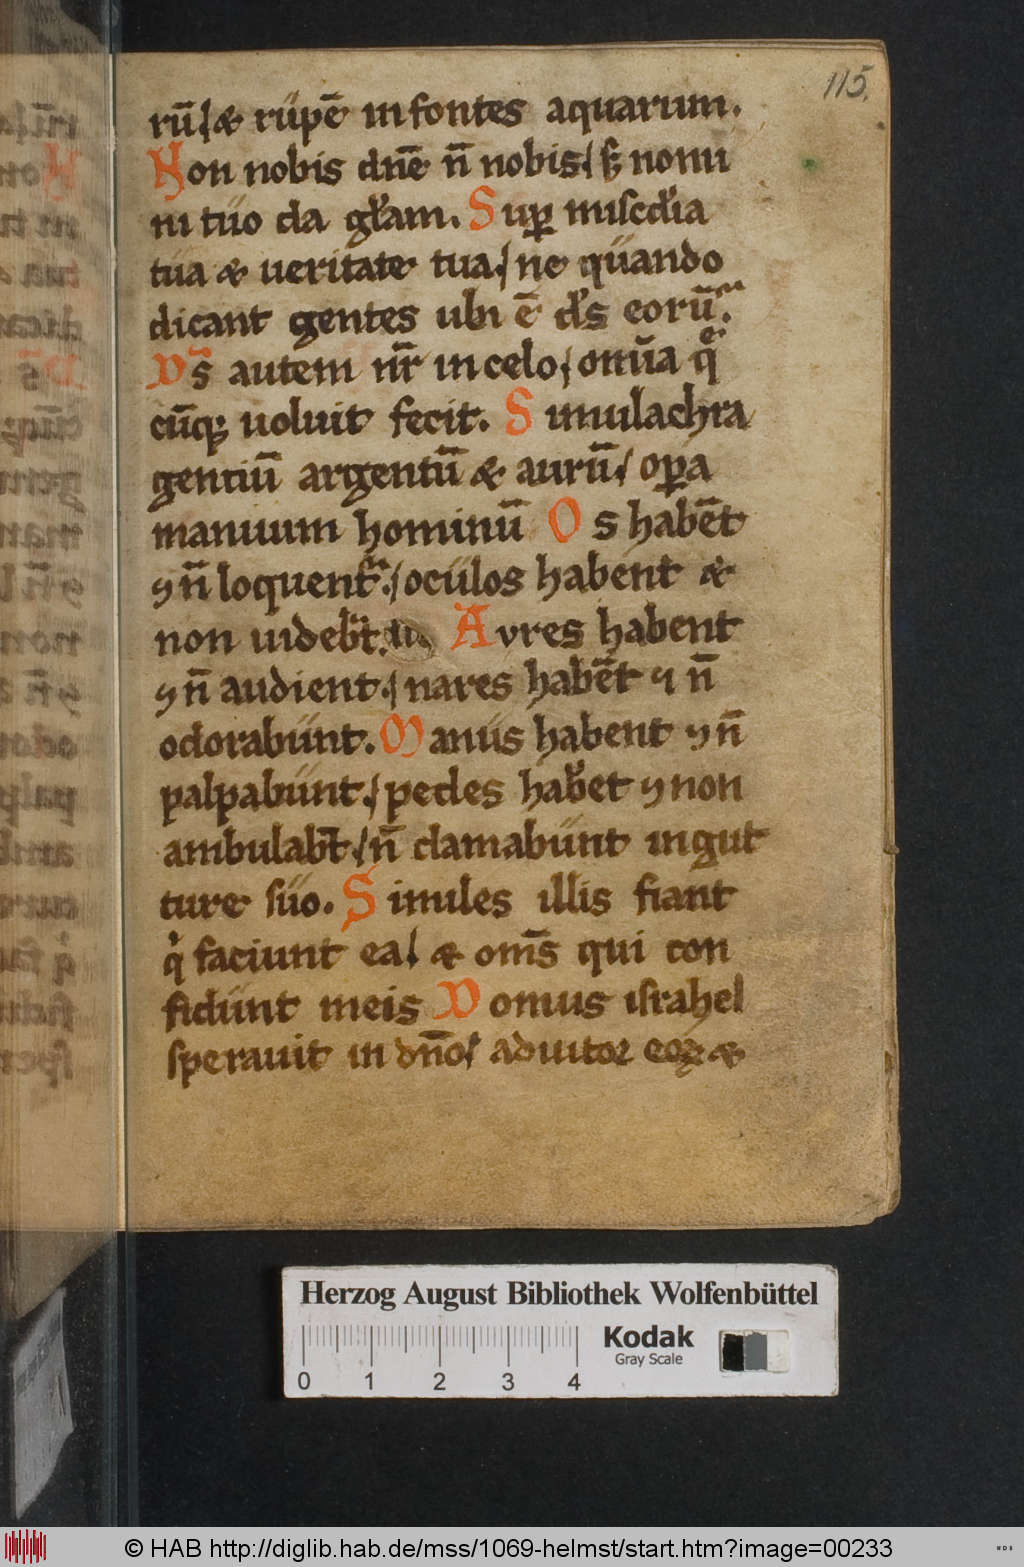 115.
rū / & rupē in fontes aquarum.
Non nobis dn̄e n̄ nobis / s; nomi
ni tuo da gl̄am. Suꝑ mis̄cdia
tua & ueritate tua / ne quando
dicant gentes ubi ē d̄s eorū.
D̄s autem nr̄ in celo / omīa q̄
cūq; uoluit fecit. Simulachra
gentiū argentū & aurū / oꝑa
manuum hominū Os habēt
⁊ n̄ loquent̄. / oculos habent &
non uideb̄t. Avres habent
⁊ n̄ audient. / nares habēt ⁊ n̄
odorabunt. Manus habent ⁊ n̄
palpabunt. / pedes hab̄et ⁊ non
ambulab̄t. / n̄ clamabunt in gut
ture suo. Similes illis fiant
qͥ faciunt ea / & om̄s qui con
fidunt in eis Domus israhel
sperauit in dn̄o / adiutor eoꝝ &
Herzog August Bibliothek Wolfenbüttel
Kodak
Gray Scale
0 1 2 3 4
© HAB http://diglib.hab.de/mss/1069-helmst/start.htm?image=00233